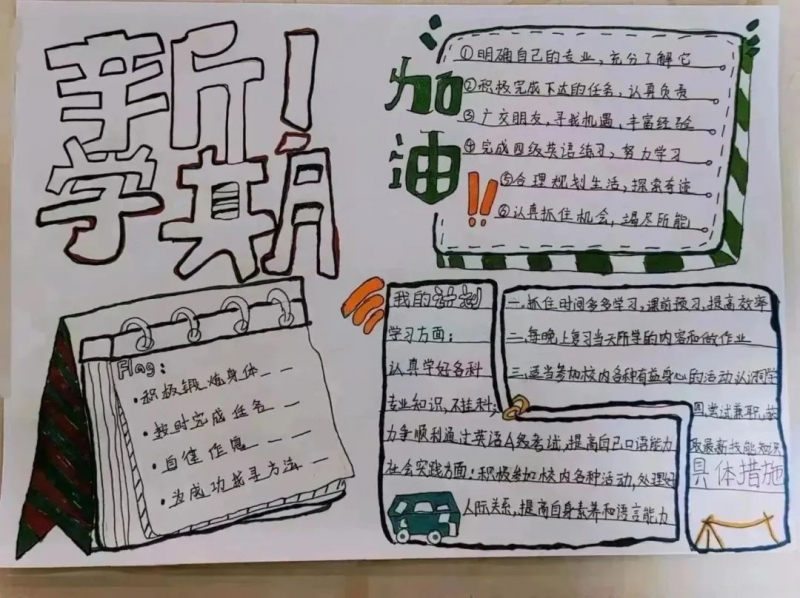 新学期!
加油!!
①明确自己的专业,充分了解它
②积极完成下达的任务,认真负责
③广交朋友,寻找机遇,丰富经验
④完成四级英语练习,努力学习
⑤合理规划生活,探索奇迹
⑥认真抓住机会,竭尽所能
Flag:
·积极锻炼身体
·按时完成任务
·自律作息
·为成功找寻方法
我的计划
学习方面:
认真学好各科
专业知识,不挂科,
力争顺利通过英语4级考试,提高自己口语能力
社会实践方面:积极参加校内各种活动,处理好
人际关系,提高自身素养和语言能力
一.抓住时间多多学习,课前预习,提高效率
二.每晚上复习当天所学的内容和做作业
三.适当参加校内各种有益身心的活动认识同学
四.尝试兼职,
取最新技能知识
具体措施